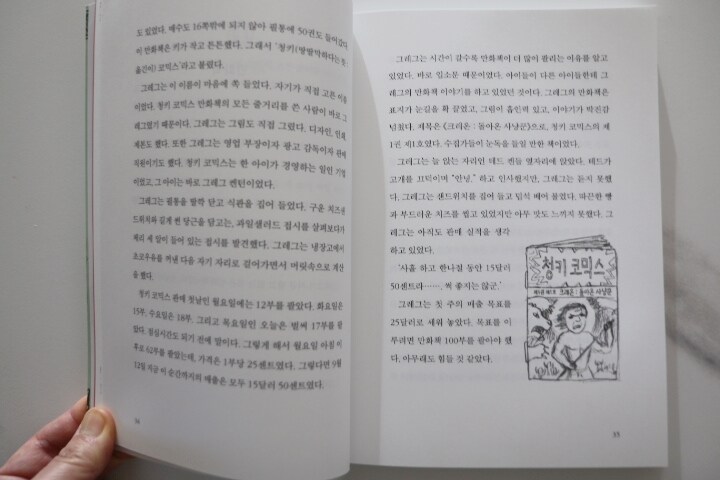 도 있었다. 게다가 16쪽밖에 되지 않아 필통에 50권도 들어갔다.
이 만화책은 키가 작고 튼튼했다. 그래서 '청키(땅딸막하다는 뜻:
옮긴이) 코믹스'라고 불렀다.
그레그는 이 이름이 마음에 쏙 들었다. 자기가 직접 고른 이름
이었다. 청키 코믹스 만화책의 모든 줄거리를 쓴 사람이 바로 그
레그였기 때문이다. 그레그는 그림도 직접 그렸다. 디자인, 인쇄,
제본도 했다. 또한 그레그는 영업 부장이자 광고 감독이자 판매
직원이기도 했다. 청키 코믹스는 한 아이가 경영하는 일인 기업
이었고, 그 아이는 바로 그레그 켄턴이었다.
그레그는 필통을 딸깍 닫고 식판을 집어 들었다. 구운 치즈샌
드위치와 길게 썬 당근을 담고는, 과일샐러드 접시를 살펴보다가
체리 세 알이 들어 있는 접시를 발견했다. 그레그는 냉장고에서
초코우유를 꺼낸 다음 자기 자리로 걸어가면서 머릿속으로 계산
을 했다.
청키 코믹스 판매 첫날인 월요일에는 12부를 팔았다. 화요일은
15부, 수요일은 18부, 그리고 목요일인 오늘은 벌써 17부를 팔
았다. 점심시간도 되기 전에 말이다. 그렇게 해서 월요일 아침 이
후로 62부를 팔았는데, 가격은 1부당 25센트였다. 그렇다면 9월
12일 지금 이 순간까지의 매출은 모두 15달러 50센트였다.
34
그레그는 시간이 갈수록 만화책이 더 많이 팔리는 이유를 알고
있었다. 바로 입소문 때문이었다. 아이들이 다른 아이들한테 그
레그의 만화책 이야기를 하고 있었던 것이다. 그레그의 만화책은
표지가 눈길을 확 끌었고, 그림이 흡인력 있고, 이야기가 박진감
넘쳤다. 제목은 《크리온 : 돌아온 사냥꾼》으로, 청키 코믹스의 제
1권 제1호였다. 수집가들이 눈독을 들일 만한 책이었다.
그레그는 늘 앉는 자리인 테드 켄들 옆자리에 앉았다. 테드가
고개를 끄덕이며 "안녕." 하고 인사했지만, 그레그는 듣지 못했
다. 그레그는 샌드위치를 집어 들고 덥석 베어 물었다. 따끈한 빵
과 부드러운 치즈를 씹고 있었지만 아무 맛도 느끼지 못했다. 그
레그는 아직도 판매 실적을 생각
하고 있었다.
'사흘 하고 한나절 동안 15달러
50센트라……, 썩 좋지는 않군.'
그레그는 첫 주의 매출 목표를
25달러로 세워 놓았다. 목표를 이
루려면 만화책 100부를 팔아야 했
다. 아무래도 힘들 것 같았다.
청키 코믹스
제1권 제1호 크리온 : 돌아온 사냥꾼
35